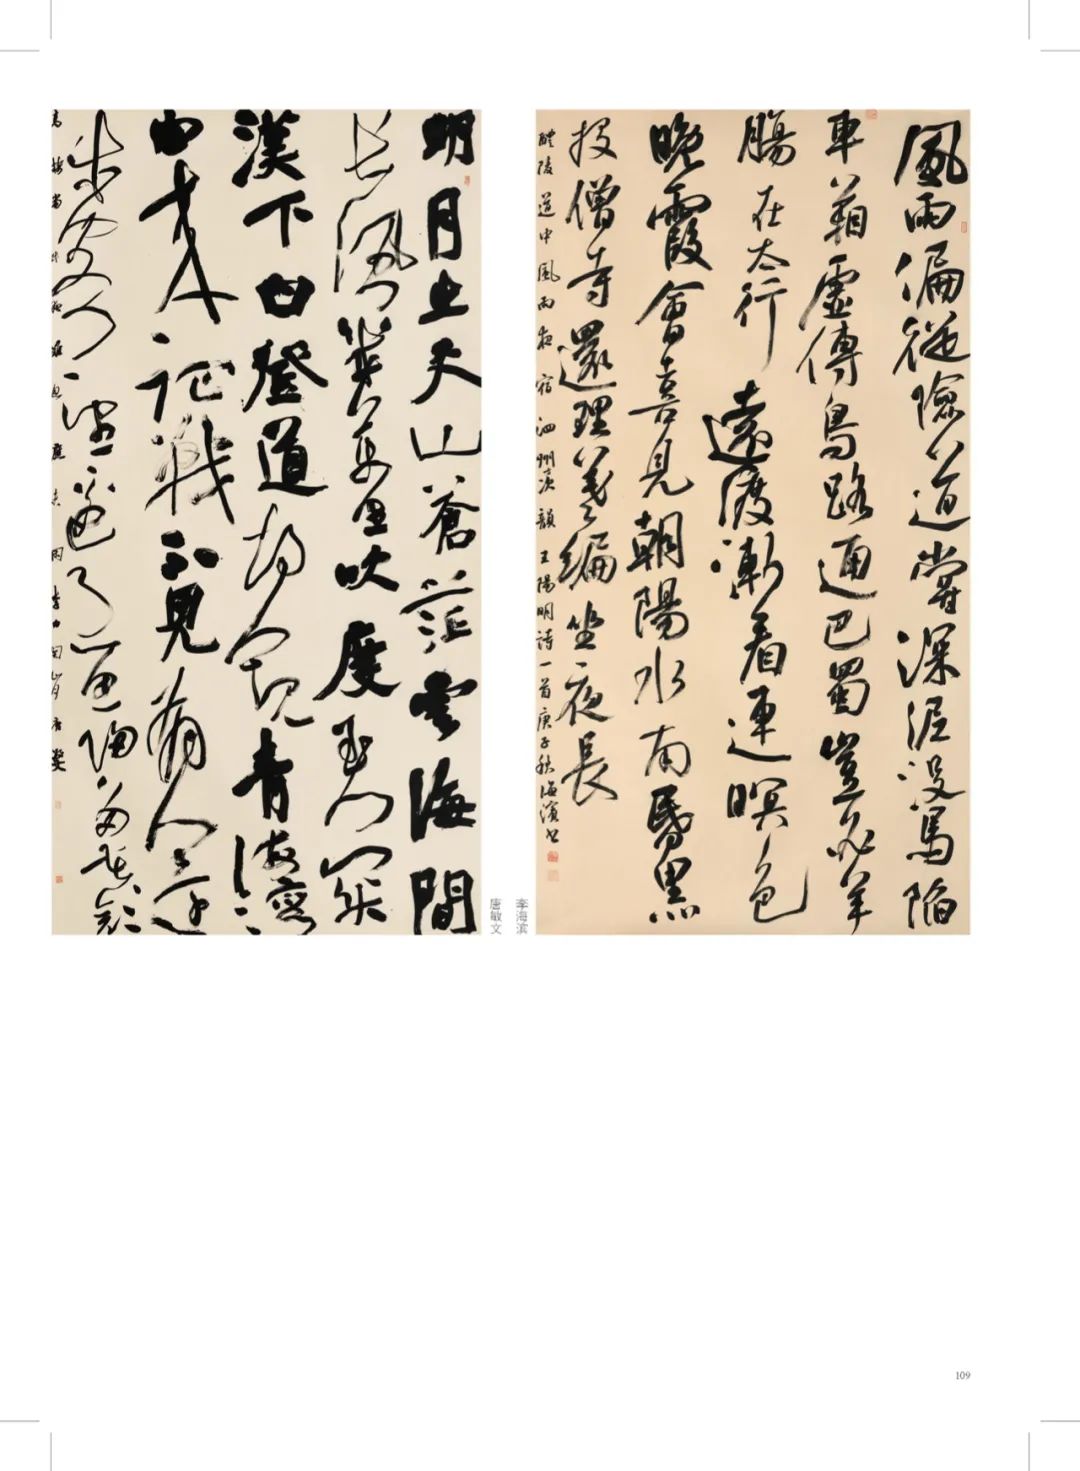 風雨偏從險道嘗深泥沒馬陷
車箱虛傳鳥路通巴蜀豈必羊
腸在太行遠渡漸看連暝色
晚霞會喜見朝陽水南昏黑
投僧寺還理羲編坐夜長
醴陵道中風雨夜宿泗州次韻王陽明詩一首庚子秋海濱書
李海滨
明月出天山蒼茫雲海間
長風幾萬里吹度玉門關
漢下白登道胡窺青海灣
由來征戰不見有人還
戍客望邊邑思歸多苦顏
高樓當此夜嘆息應未閑李白關山月唐
唐敏文
109